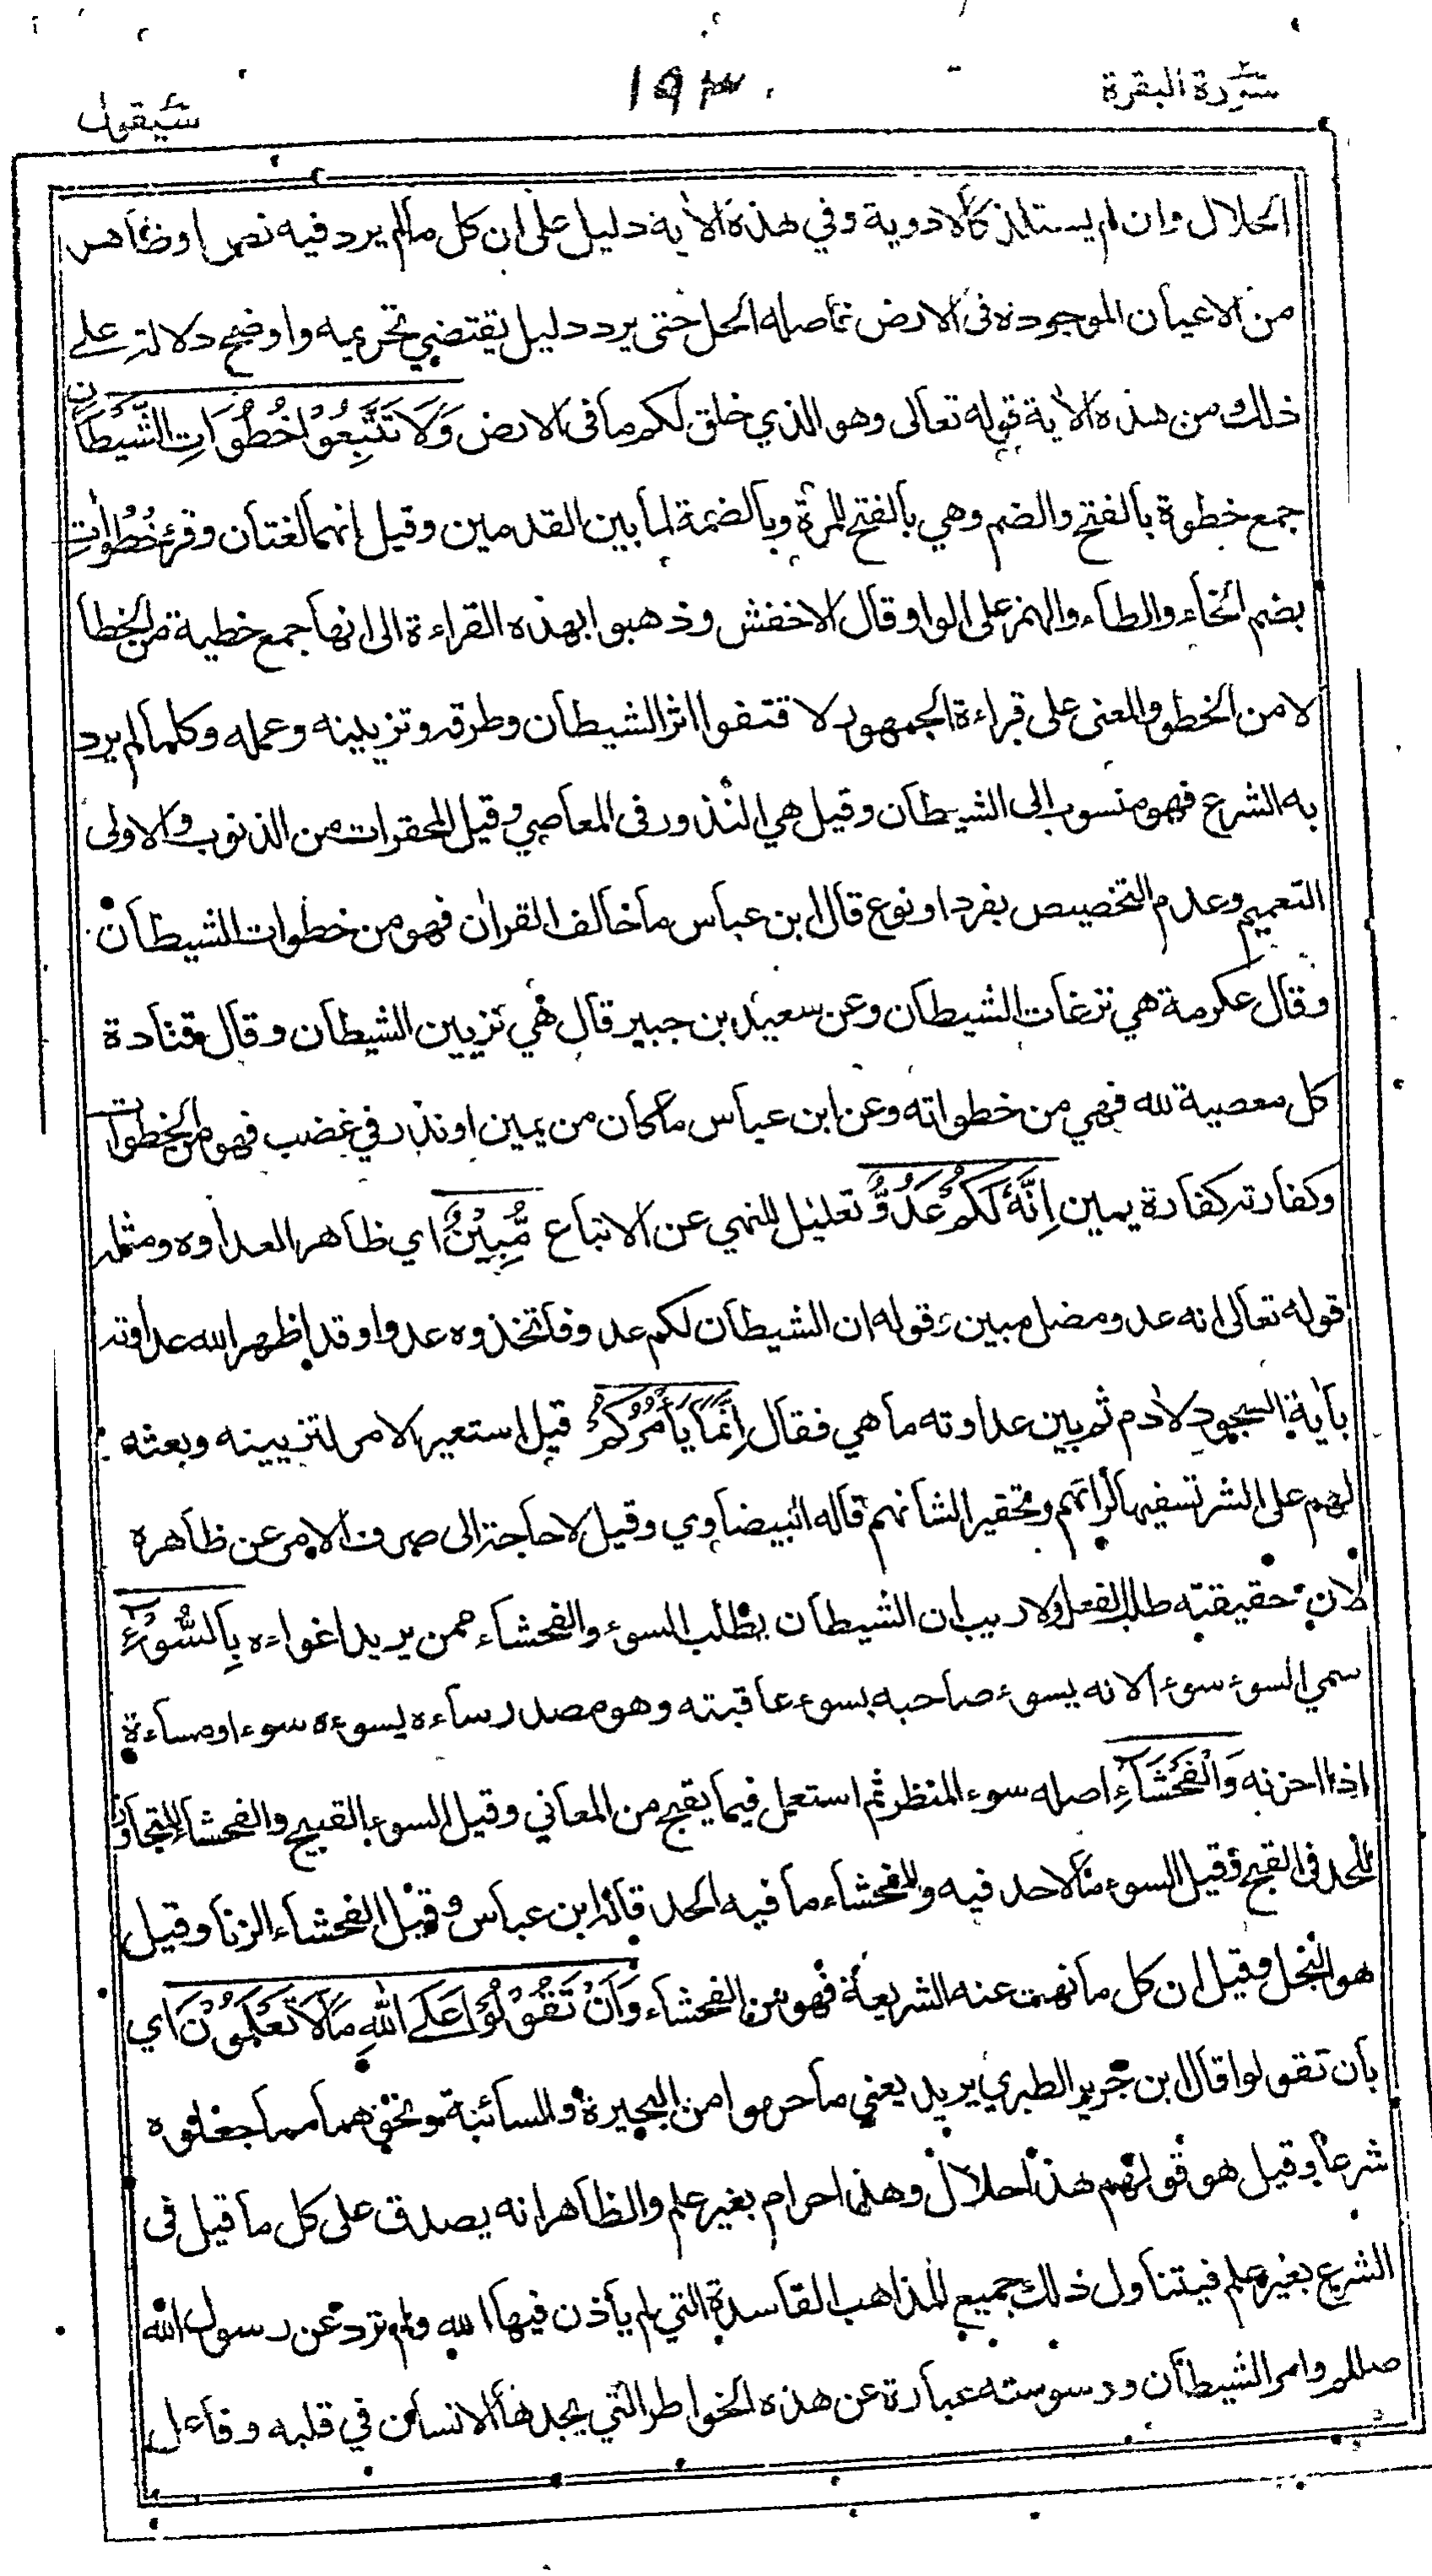 سورة البقرة
١٩٣
سيقول
الحلال وان لم يستلذ كالادوية وفي هذه الاية دليل على ان كل مالم يرد فيه نص او ظاهر
من الاعيان الموجودة فى الارض فاصله الحل حتى يرد دليل يقتضي تحريمه واوضح دلالة على
ذلك من هذه الاية قوله تعالى وهو الذي خلق لكم ما فى الارض وَلَا تَتَّبِعُوْا خُطُوَاتِ الشَّيْطَانِ
جمع خطوة بالفتح والضم وهي بالفتح للمرة وبالضمة لما بين القدمين وقيل انهما لغتان وقرئ خُطُؤاتِ
بضم الخاء والطاء والهمز على الواو قال الاخفش وذهبوا بهذه القراءة الى انها جمع خطية من الخطأ
لا من الخطو والمعنى على قراءة الجمهور لا تقتفوا اثر الشيطان وطرقه وتزيينه وعمله وكلما لم يرد
به الشرع فهو منسوب الى الشيطان وقيل هي النذور فى المعاصي وقيل المحقرات من الذنوب والاولى
التعميم وعدم التخصيص بفرد او نوع قال ابن عباس ما خالف القران فهو من خطوات الشيطان
وقال عكرمة هي نزغات الشيطان وعن سعيد بن جبير قال هي تزيين الشيطان وقال قتادة
كل معصية لله فهي من خطواته وعن ابن عباس ما كان من يمين او نذر في غضب فهو من الخطوات
وكفارته كفارة يمين اِنَّهُ لَكُمْ عَدُوٌّ تعليل للنهي عن الاتباع مُّبِيْنٌ اي ظاهر العداوه ومثله
قوله تعالى انه عدو مضل مبين وقوله ان الشيطان لكم عدو فاتخذوه عدوا وقد اظهر الله عداوته
بأية السجود لادم ثم بين عداوته ما هي فقال اِنَّمَا يَأْمُرُكُمْ قيل استعير الامر لتزيينه وبعثه
لهم على الشر تسفيها لرأيهم وتحقيرا لشانهم قاله البيضاوي وقيل لا حاجة الى صرف الامر عن ظاهره
لان حقيقته طلب الفعل ولا ريب ان الشيطان يطلب السوء والفحشاء ممن يريد اغواءه بِالسُّوْءِ
سمي السوء سوء الانه يسوء صاحبه بسوء عاقبته وهو مصدر ساءه يسوءه سوء او مساءة
اذا احزنه وَالْفَحْشَاءِ اصله سوء المنظر ثم استعمل فيما يقبح من المعاني وقيل السوء القبيح والفحشاء التجاوز
للحد فى القبح وقيل السوء ما لا حد فيه والفحشاء ما فيه الحد قاله ابن عباس وقيل الفحشاء الزنا وقيل
هو البخل وقيل ان كل ما نهت عنه الشريعة فهو من الفحشاء وَاَنْ تَقُوْلُوْا عَلَى اللهِ مَا لَا تَعْلَمُوْنَ اي
بان تقولوا قال ابن جرير الطبري يريد يعني ما حرموا من البحيرة والسائبة ونحوهما مما جعلوه
شرعا وقيل هو قولهم هذا حلال وهذا حرام بغير علم والظاهر انه يصدق على كل ما قيل فى
الشرع بغير علم فيتناول ذلك جميع المذاهب الفاسدة التي لم يأذن فيها الله ولم ترد عن رسول الله
صللم وامر الشيطان ووسوسته عبارة عن هذه الخواطر التي يجدها الانسان في قلبه وفاعل